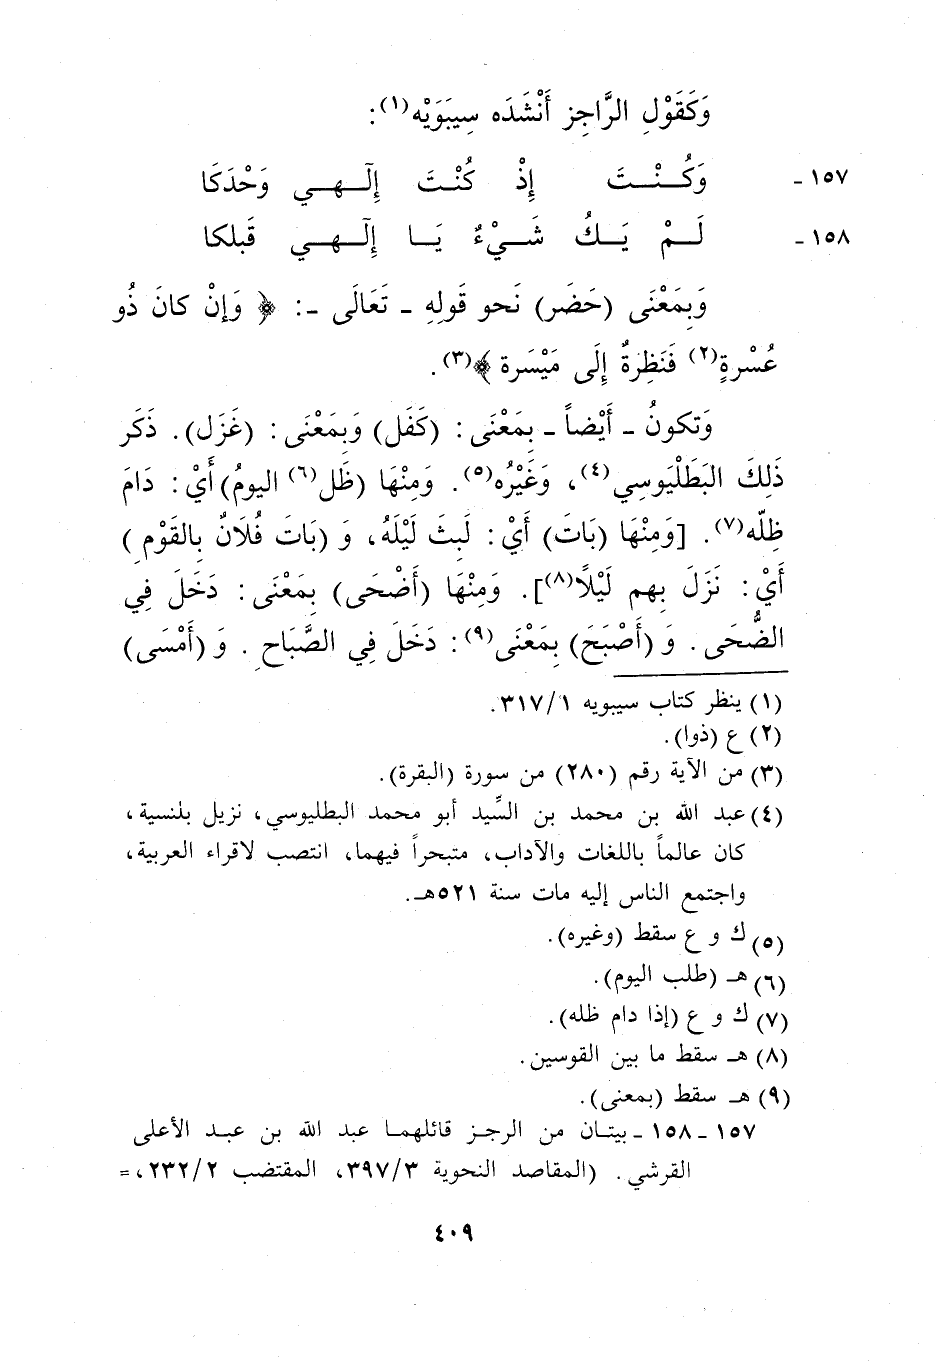 وَكَقَوْلِ الرَّاجِزِ أَنْشَدَه سِيبَوَيْه(١):
١٥٧ - وَكُـنْـتَ إِذْ كُنْتَ إِلٰـهـي وَحْدَكَا
١٥٨ - لَـمْ يَـكُ شَـيْءٌ يَـا إِلٰـهـي قَبلكا
وَبِمَعْنَى (حَضَر) نَحو قَولِهِ - تَعَالَى -: ﴿ وَإِنْ كانَ ذُو
عُسْرةٍ(٢) فَنَظِرةٌ إِلَى مَيْسَرة ﴾(٣).
وَتكونُ - أَيْضاً - بِمَعْنَى: (كَفَل) وَبِمَعْنَى: (غَزَل). ذَكَر
ذَلِكَ البَطَلْيَوسِي(٤)، وَغَيْرُه(٥). وَمِنْهَا (ظَل(٦) اليومُ) أَيْ: دَامَ
ظِلّه(٧). [وَمِنْهَا (بَاتَ) أَيْ: لَبِثَ لَيْلَهُ، وَ (بَاتَ فُلَانٌ بِالقَوْمِ)
أَيْ: نَزَلَ بِهم لَيْلًا(٨)]. وَمِنْهَا (أَضْحَى) بِمَعْنَى: دَخَلَ فِي
الضُّحَى. وَ (أَصْبَحَ) بِمَعْنَى(٩): دَخَلَ فِي الصَّبَاحِ. وَ (أَمْسَى)
(١) ينظر كتاب سيبويه ٣١٧/١.
(٢) ع (ذوا).
(٣) من الآية رقم (٢٨٠) من سورة (البقرة).
(٤) عبد الله بن محمد بن السِّيد أبو محمد البطليوسي، نزيل بلنسية،
كان عالماً باللغات والآداب، متبحراً فيهما، انتصب لاقراء العربية،
واجتمع الناس إليه مات سنة ٥٢١هـ.
(٥) ك و ع سقط (وغيره).
(٦) هـ (طلب اليوم).
(٧) ك و ع (إذا دام ظله).
(٨) هـ سقط ما بين القوسين.
(٩) هـ سقط (بمعنى).
١٥٧ - ١٥٨ - بيتـان من الرجـز قائلهمـا عبد الله بن عبـد الأعلى
القرشي. (المقاصد النحوية ٣٩٧/٣، المقتضب ٢٣٢/٢، =
٤٠٩